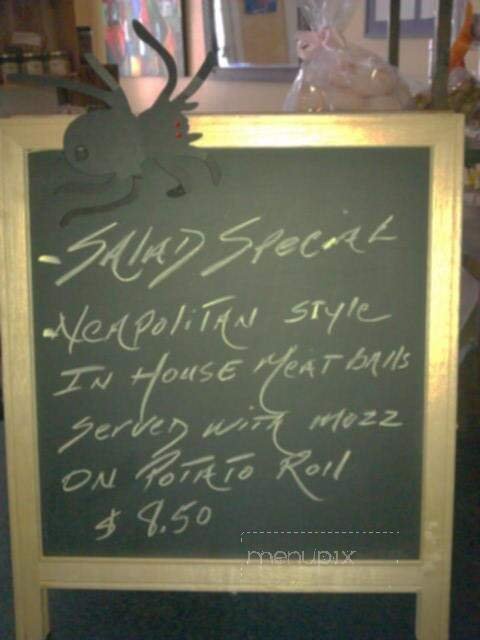 - Salad Special
- Neapolitan Style
In House Meatballs
Served with mozz
on Potato Roll
$ 8.50
menupix